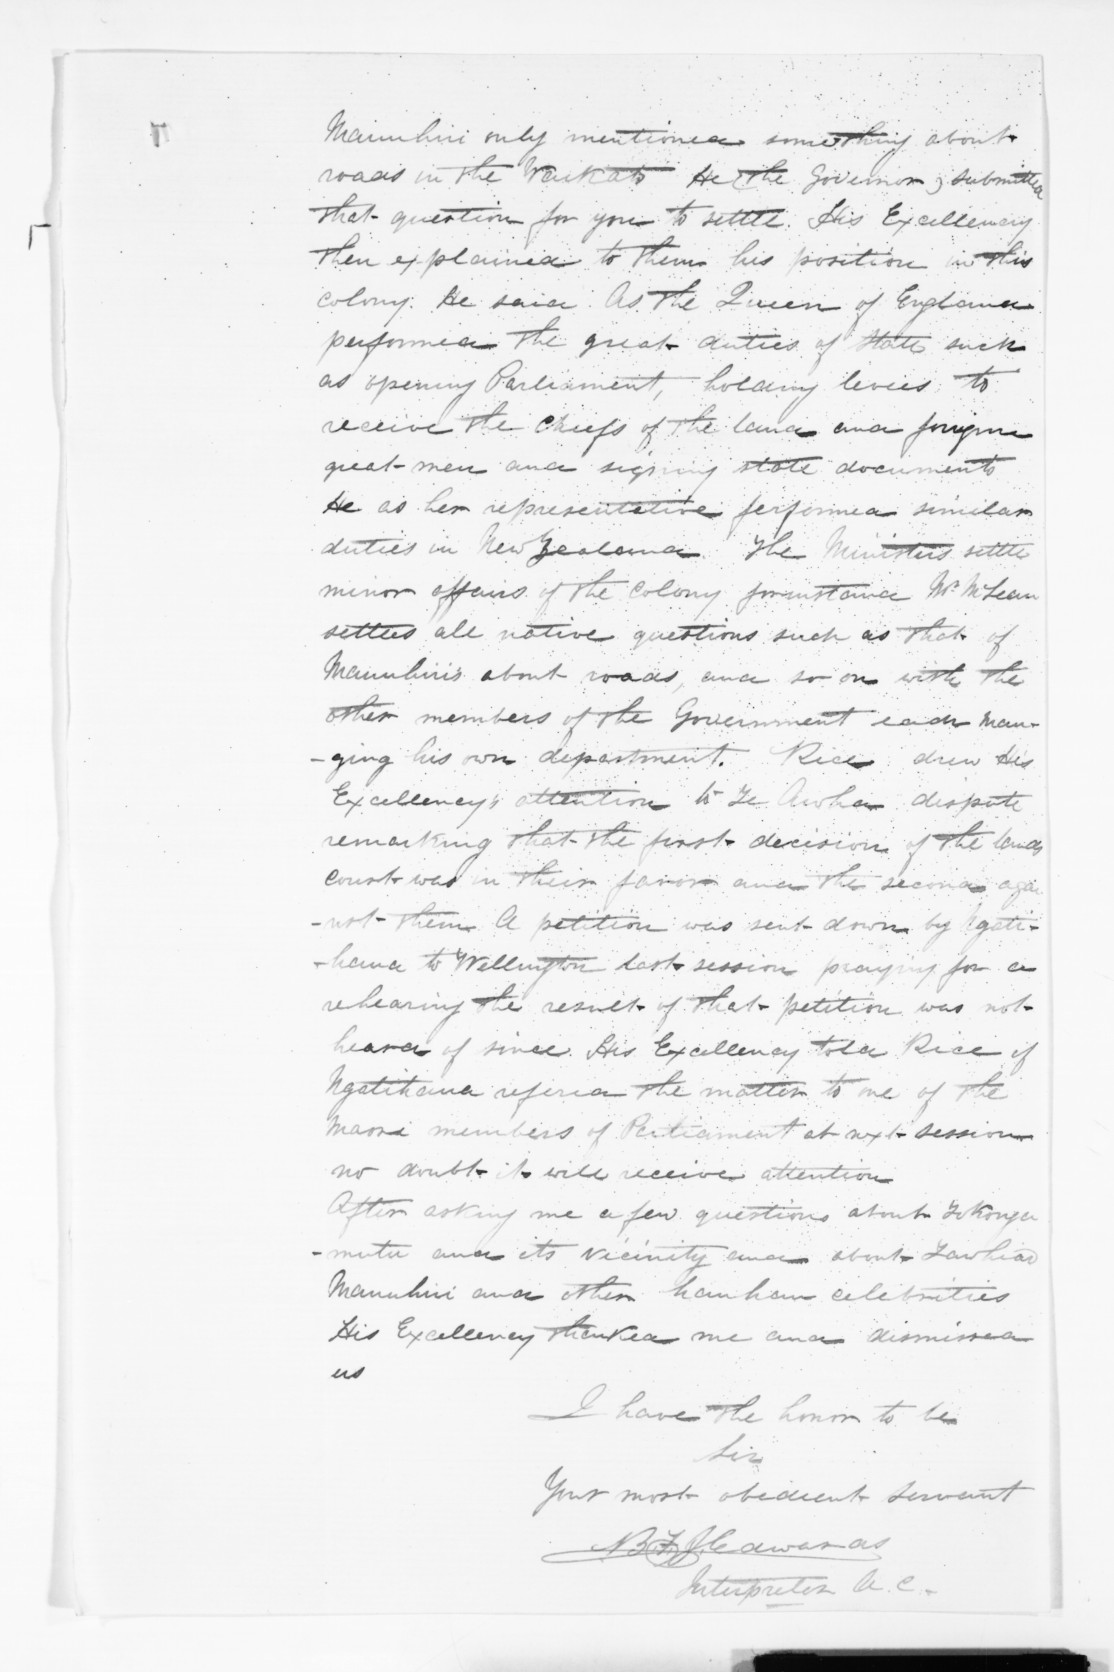 Manuhiri only mentioned something about
roads in the Waikato He (the Governor) submitted
that question for you to settle. His Excellency
then explained to them his position in this
colony. He said As the Queen of England
performed the great duties of State such
as opening Parliament, holding levees, to
receive the chiefs of the land and foreign
great men and signing state documents
He as her representative performed similar
duties in New Zealand. The Ministers settle
minor affairs of the colony forinstance Mr. McLean
settles all native questions such as that of
Manuhiri's about roads, and so on with the
other members of the Government each man-
-ging his own department. Rice drew His
Excellency's attention to Te Awha dispute
remarking that the first decision of the lands
court was in their favor and the second agai
-nst them A petition was sent down by Ngati-
-haua to Wellington last session praying for a
rehearing the result of that petition was not
heard of since. His Excellency told Rice if
Ngatihaua refered the matter to one of the
Maori members of Parliament at next session
no doubt it will receive attention
After asking me a few questions about Tokanga
-mutu and its vicinity and about Tawhiao
Manuhiri and other hauhau celebrities
His Excellency thanked me and dismissed
us
I have the honor to be
Sir
Your most obedient servant
N B F J Edwards
Interpreter A. C.